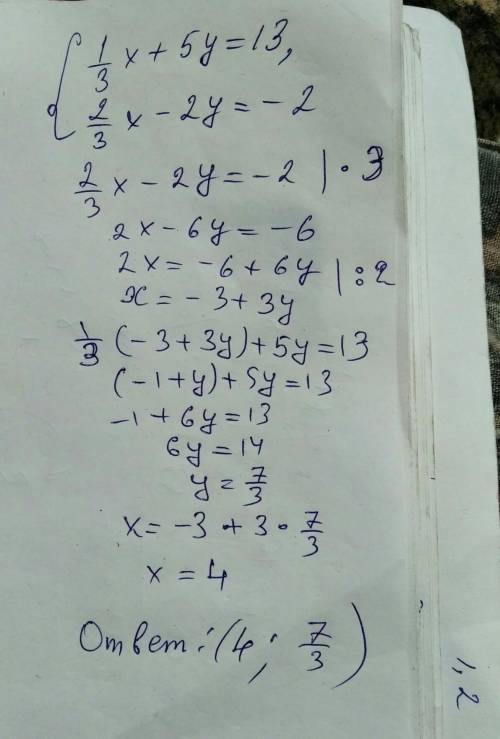 { 1/3 x + 5y = 13,
2/3 x - 2y = -2
2/3 x - 2y = -2 | · 3
2x - 6y = -6
2x = -6 + 6y | : 2
x = -3 + 3y
1/3 (-3 + 3y) + 5y = 13
(-1 + y) + 5y = 13
-1 + 6y = 13
6y = 14
y = 7/3
x = -3 + 3 · 7/3
x = 4
Ответ: (4; 7/3)
1,2